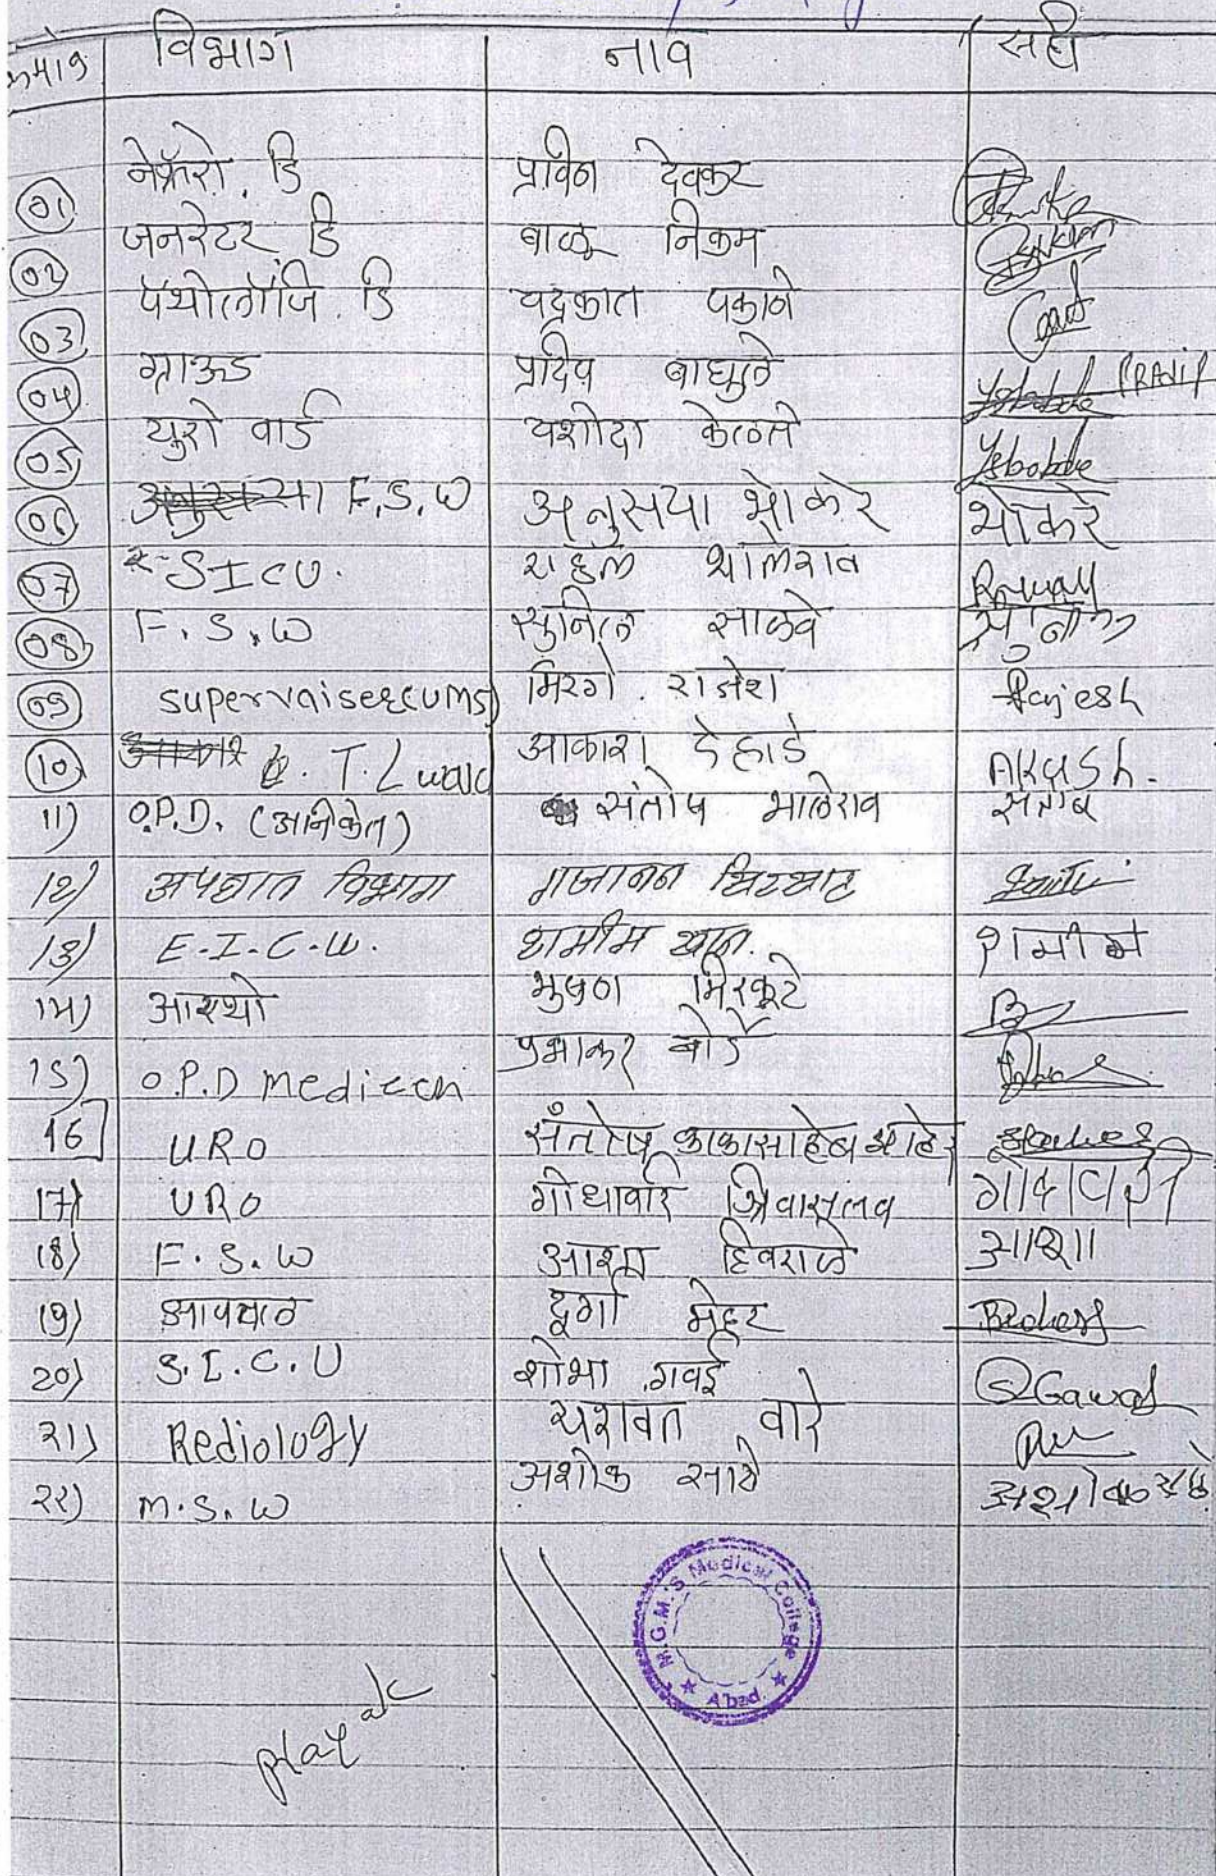 क्रमांक विभाग नाव सही
01 नेफ्रॉरो. डि प्रविण देवकर
02 जनरेटर डि बाळू निकम
03 पॅथोलॉजि. डि चद्रकात पकाने
04 ग्राऊड प्रदिप वाघुले PRAdip
05 युरो वार्ड यशोदा केळते
06 F.S.W अनुसया भोकरे भोकरे
07 SICU. राहुल भालेराव
08 F.S.W सुनिल साळवे सुनिल
09 supervaiser(cums) मिरगे. राजेश Rajesh
10 T.L ward आकाश देहाडे AKASh.
11) O.P.D. (अनिकेत) संतोष भालेराव संतोष
12) अपघात विभाग गजानन
13) E.I.C.U. शमीम खान. शमीम
14) आरथो भुषण मिरकुटे
15) O.P.D Medicen प्रभाकर बोर्डे
16] URO संतोष काकासाहेब आहेर
17) URO गोधावरि श्रिवास्तव गोदावरी
18) F.S.W आशा हिवराळे आशा
19) आपघात दूर्गा मेहर
20) S.I.C.U शोभा गवई Gawai
21) Rediology यशवंत वारे
22) M.S.W अशोक साठे अशोक साठे
M.G.M.'S Medical College
A'bad